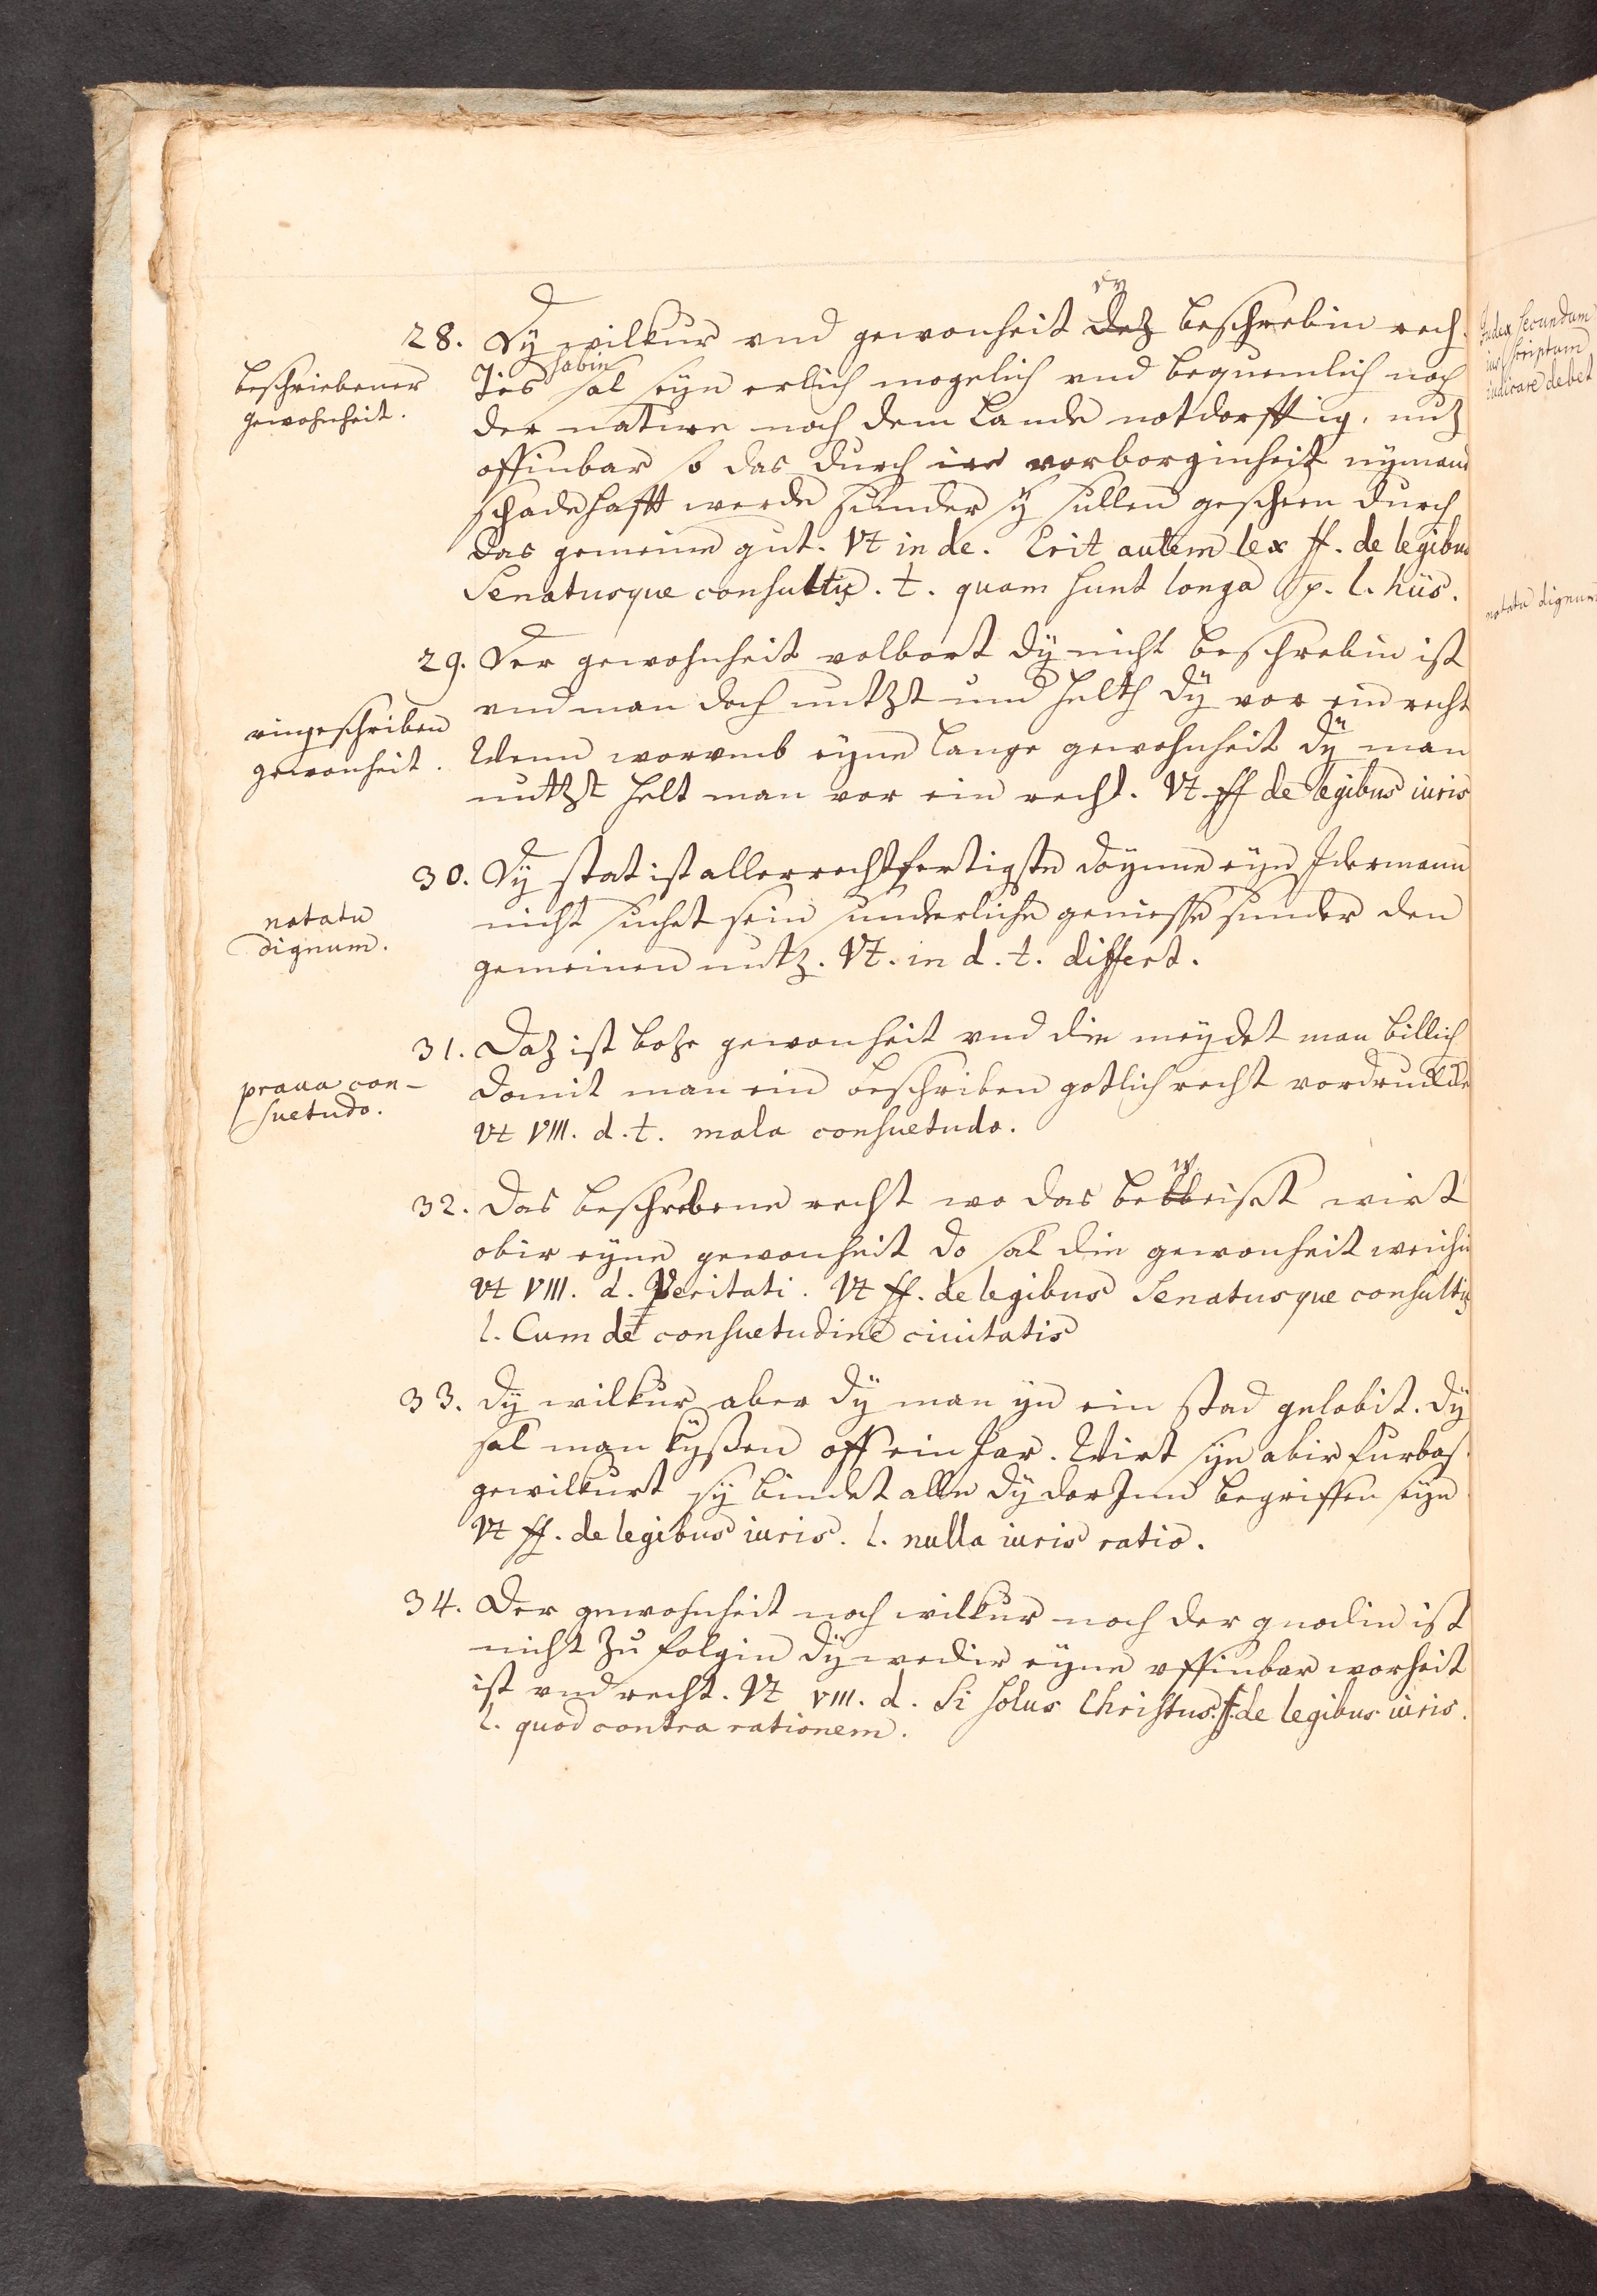 dy
28. Dy wilkur vnd gewonheit dez beschrebin rech-
habin
tes sal seyn erlich mogelich vnd bequemlich noch
beschriebener
gewohnheit.
der nature noch dem Lande notdorfftig. nutz
offinbar so das durch ire vorborginheit nymand
schadehafft werde sunder sy sullen gescheen durch
das gemeine gut. Vt in de. Erit autem lex ff. de legibus
Senatusque consultis. t. quam sunt longa p. l. hiis.
29. Der gewohnheit volbort dy nicht beschrebin ist
vnd man doch nutzt und helth dy vor ein recht
ungeschriben
gewonheit.
Wenn worvmb eyne lange gewohnheit dy man
nutzt helt man vor ein recht. Vt ff de legibus iuris
30. Dy stat ist allerrechtfertigste doynne eyn Idermann
nicht suchet sein sunderliche geniesse sunder den
notatu
dignum.
gemeinen nutz. Vt. in d. t. differt.
31. Daz ist boze gewonheit vnd die meydet man billich
domit man ein beschriben gotlich recht vordruckt
praua con-
suetudo.
Vt VIII. d. t. mala consuetudo.
w
32. Das beschrebene recht wo das bebbeist wirt
obir eyne gewonheit do sal die gewonheit weichin
Vt VIII. d. Veritati. Vt ff. de legibus Senatusque consultis
l. Cum de consuetudine ciuitatis
33. dy wilkur aber dy man yn ein stad gelobit. dy
sal man kyßen off ein Jar. Wirt syn abir furbas
gewilkurt sy bindet alle dy dorJnn begriffen seyn
Vt ff. de legibus iuris. l. nulla iuris ratio.
34. Der gewohnheit noch wilkur noch der gnadin ist
nicht zu folgin dy wedir eyne offinbar worheit
ist vnd recht. Vt VIII. d. Si solus Christus. ff. de legibus iuris.
l. quod contra rationem.
Iudex secundum
ius scriptum
iudicare debet
notatu dignum